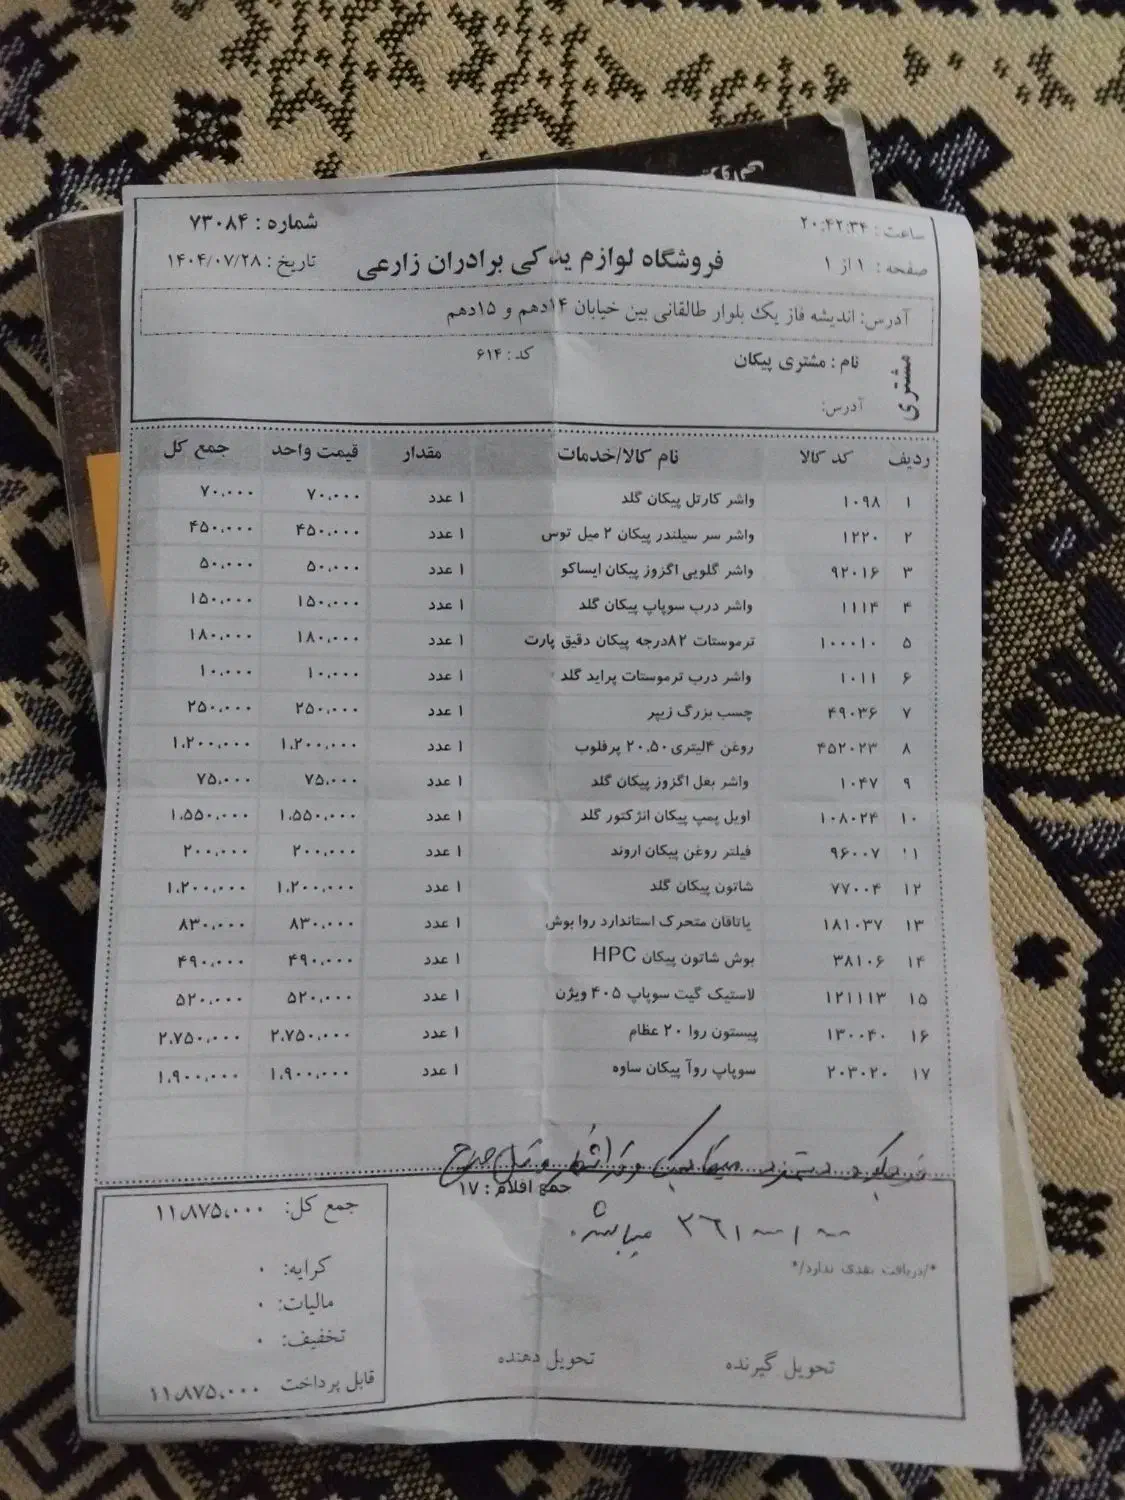 ساعت: ۲۰:۴۲:۳۴
شماره: ۷۳۰۸۴
صفحه: ۱ از ۱
فروشگاه لوازم یدکی برادران زارعی
تاریخ: ۱۴۰۴/۰۷/۲۸
آدرس: اندیشه فاز یک بلوار طالقانی بین خیابان ۱۴دهم و ۱۵دهم
مشتری
نام: مشتری پیکان
کد: ۶۱۴
آدرس:
ردیف کد کالا نام کالا/خدمات مقدار قیمت واحد جمع کل
۱ ۱۰۹۸ واشر کارتل پیکان گلد ۱ عدد ۷۰,۰۰۰ ۷۰,۰۰۰
۲ ۱۲۲۰ واشر سر سیلندر پیکان ۲ میل توس ۱ عدد ۴۵۰,۰۰۰ ۴۵۰,۰۰۰
۳ ۹۲۰۱۶ واشر گلویی اگزوز پیکان ایساکو ۱ عدد ۵۰,۰۰۰ ۵۰,۰۰۰
۴ ۱۱۱۴ واشر درب سوپاپ پیکان گلد ۱ عدد ۱۵۰,۰۰۰ ۱۵۰,۰۰۰
۵ ۱۰۰۰۱۰ ترموستات ۸۲درجه پیکان دقیق پارت ۱ عدد ۱۸۰,۰۰۰ ۱۸۰,۰۰۰
۶ ۱۰۱۱ واشر درب ترموستات پراید گلد ۱ عدد ۱۰,۰۰۰ ۱۰,۰۰۰
۷ ۴۹۰۳۶ چسب بزرگ زیپر ۱ عدد ۲۵۰,۰۰۰ ۲۵۰,۰۰۰
۸ ۴۵۲۰۲۳ روغن ۴لیتری ۲۰.۵۰ پرفلوب ۱ عدد ۱,۲۰۰,۰۰۰ ۱,۲۰۰,۰۰۰
۹ ۱۰۴۷ واشر بغل اگزوز پیکان گلد ۱ عدد ۷۵,۰۰۰ ۷۵,۰۰۰
۱۰ ۱۰۸۰۲۴ اویل پمپ پیکان انژکتور گلد ۱ عدد ۱,۵۵۰,۰۰۰ ۱,۵۵۰,۰۰۰
۱۱ ۹۶۰۰۷ فیلتر روغن پیکان اروند ۱ عدد ۲۰۰,۰۰۰ ۲۰۰,۰۰۰
۱۲ ۷۷۰۰۴ شاتون پیکان گلد ۱ عدد ۱,۲۰۰,۰۰۰ ۱,۲۰۰,۰۰۰
۱۳ ۱۸۱۰۳۷ یاتاقان متحرک استاندارد روا بوش ۱ عدد ۸۳۰,۰۰۰ ۸۳۰,۰۰۰
۱۴ ۳۸۱۰۶ بوش شاتون پیکان HPC ۱ عدد ۴۹۰,۰۰۰ ۴۹۰,۰۰۰
۱۵ ۱۲۱۱۱۳ لاستیک گیت سوپاپ ۴۰۵ ویژن ۱ عدد ۵۲۰,۰۰۰ ۵۲۰,۰۰۰
۱۶ ۱۳۰۰۴۰ پیستون روا ۲۰ عظام ۱ عدد ۲,۷۵۰,۰۰۰ ۲,۷۵۰,۰۰۰
۱۷ ۲۰۳۰۲۰ سوپاپ روآ پیکان ساوه ۱ عدد ۱,۹۰۰,۰۰۰ ۱,۹۰۰,۰۰۰
دستمزد مکانیک
جمع اقلام: ۱۷
میباشد
*/دریافت نقدی ندارد/*
جمع کل: ۱۱,۸۷۵,۰۰۰
کرایه: ۰
مالیات: ۰
تخفیف: ۰
قابل پرداخت ۱۱,۸۷۵,۰۰۰
تحویل گیرنده
تحویل دهنده